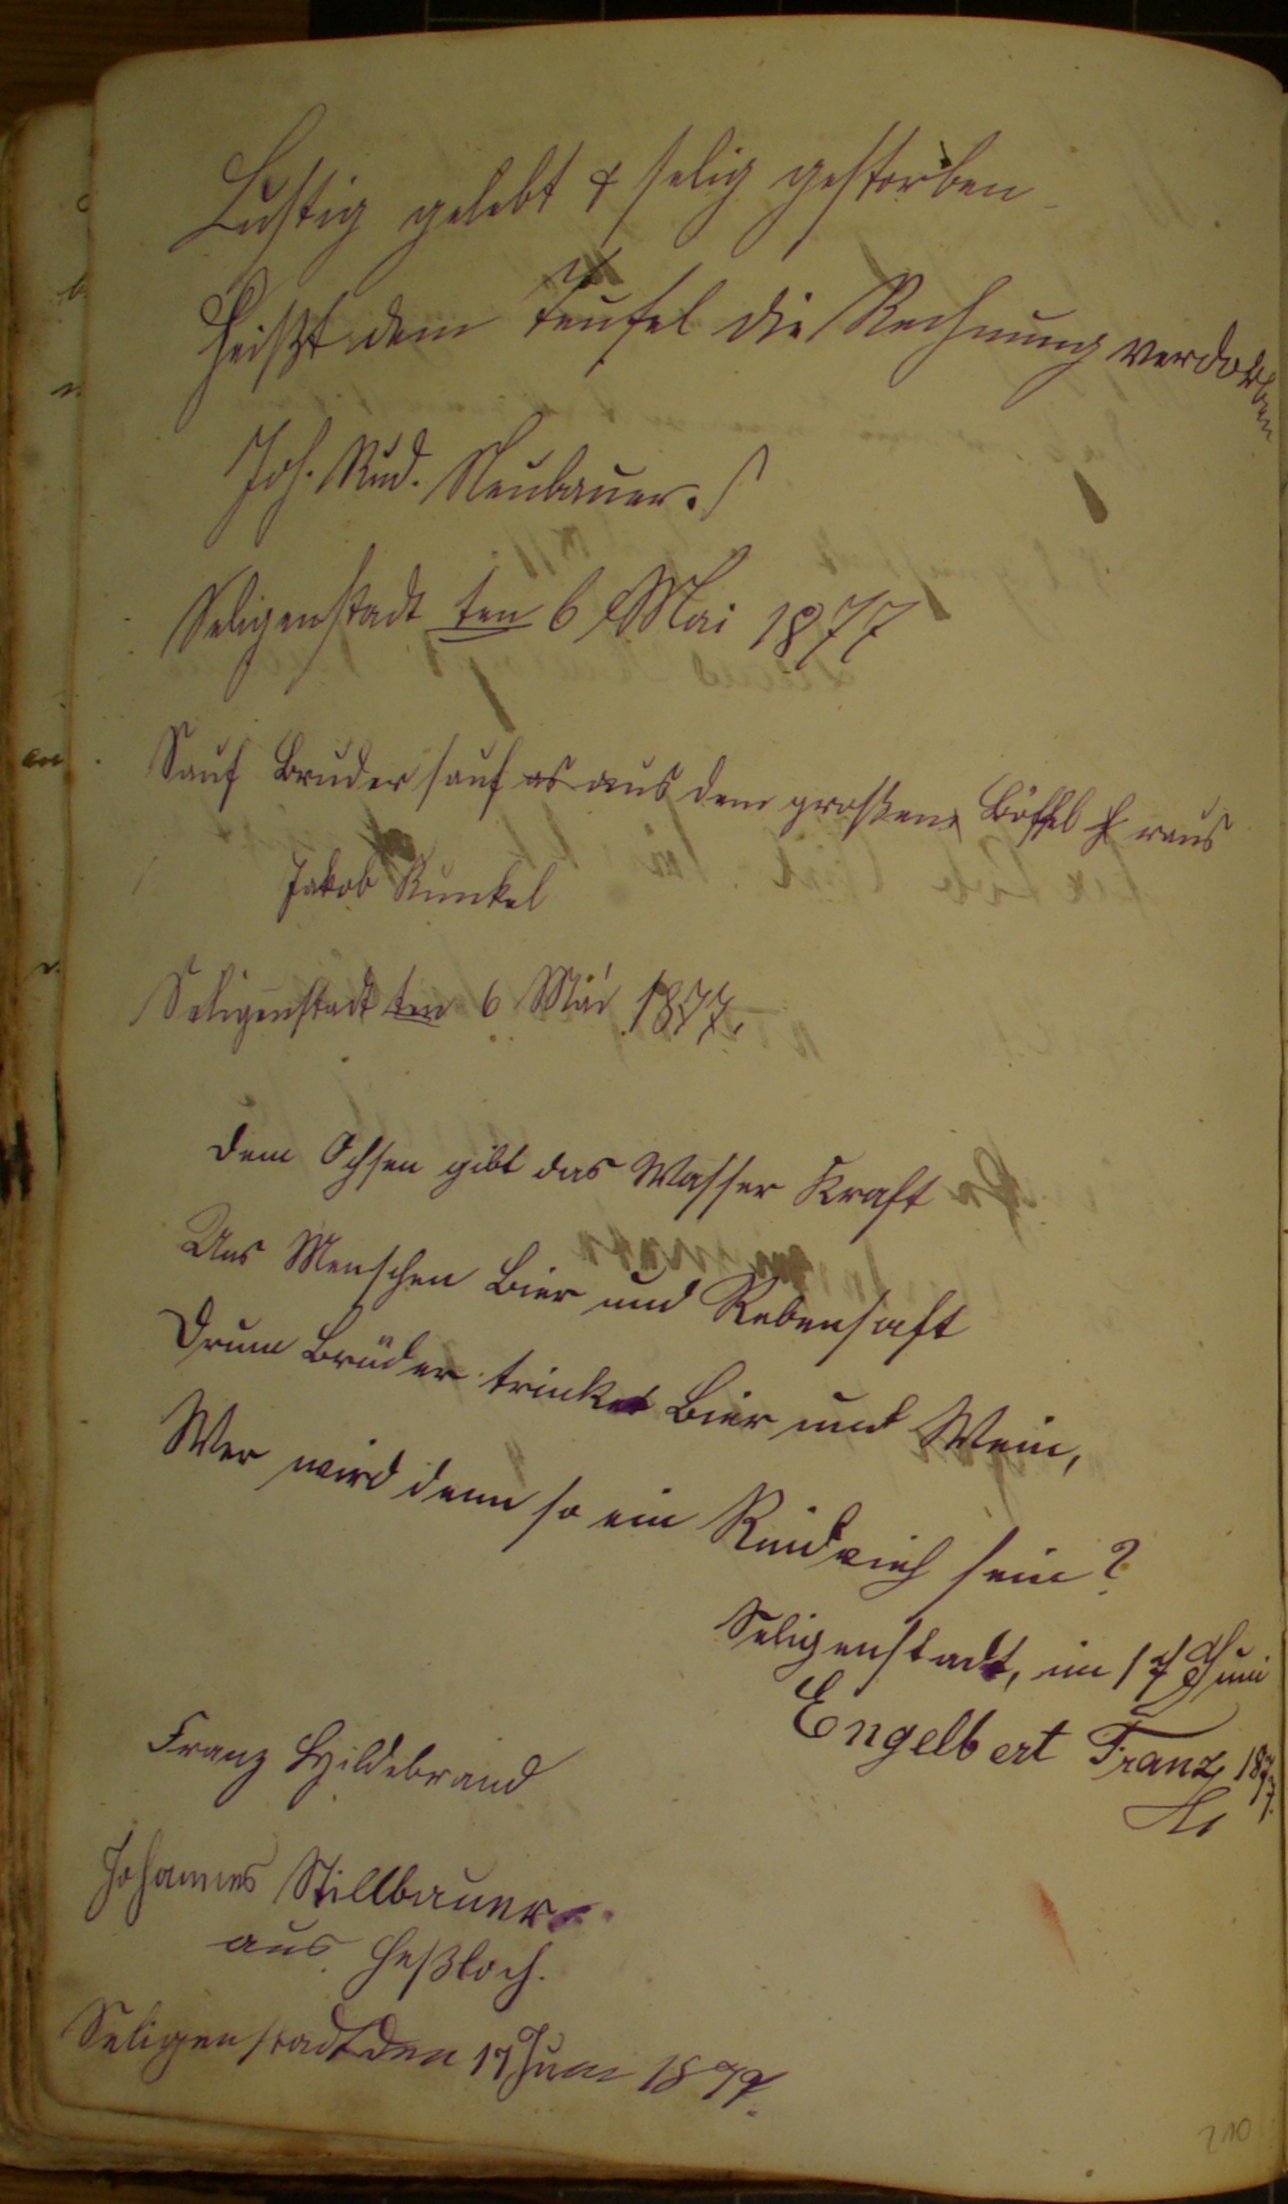 Lustig gelebt & selig gestorben
heißt dem Teufel die Rechnung verdorben
Joh. Rud. Neubauer.
Seligenstadt ten 6 Mai 1877
Sauf Bruder sauf es aus dem großen Löffel raus
Jakob Runkel
Seligenstadt ten 6 Mai 1877.
Dem Ochsen gibt das Wasser Kraft
Uns Menschen Bier und Rebensaft
Drum Brüder trinket Bier und Wein,
Wer wird denn so ein Rindvieh sein?
Seligenstadt, im 17 Juni
Engelbert Franz 1877.
Franz Hildebrand
Johannes Stillbauer
aus Heßloch.
Seligenstadt den 17 Juni 1877.
210